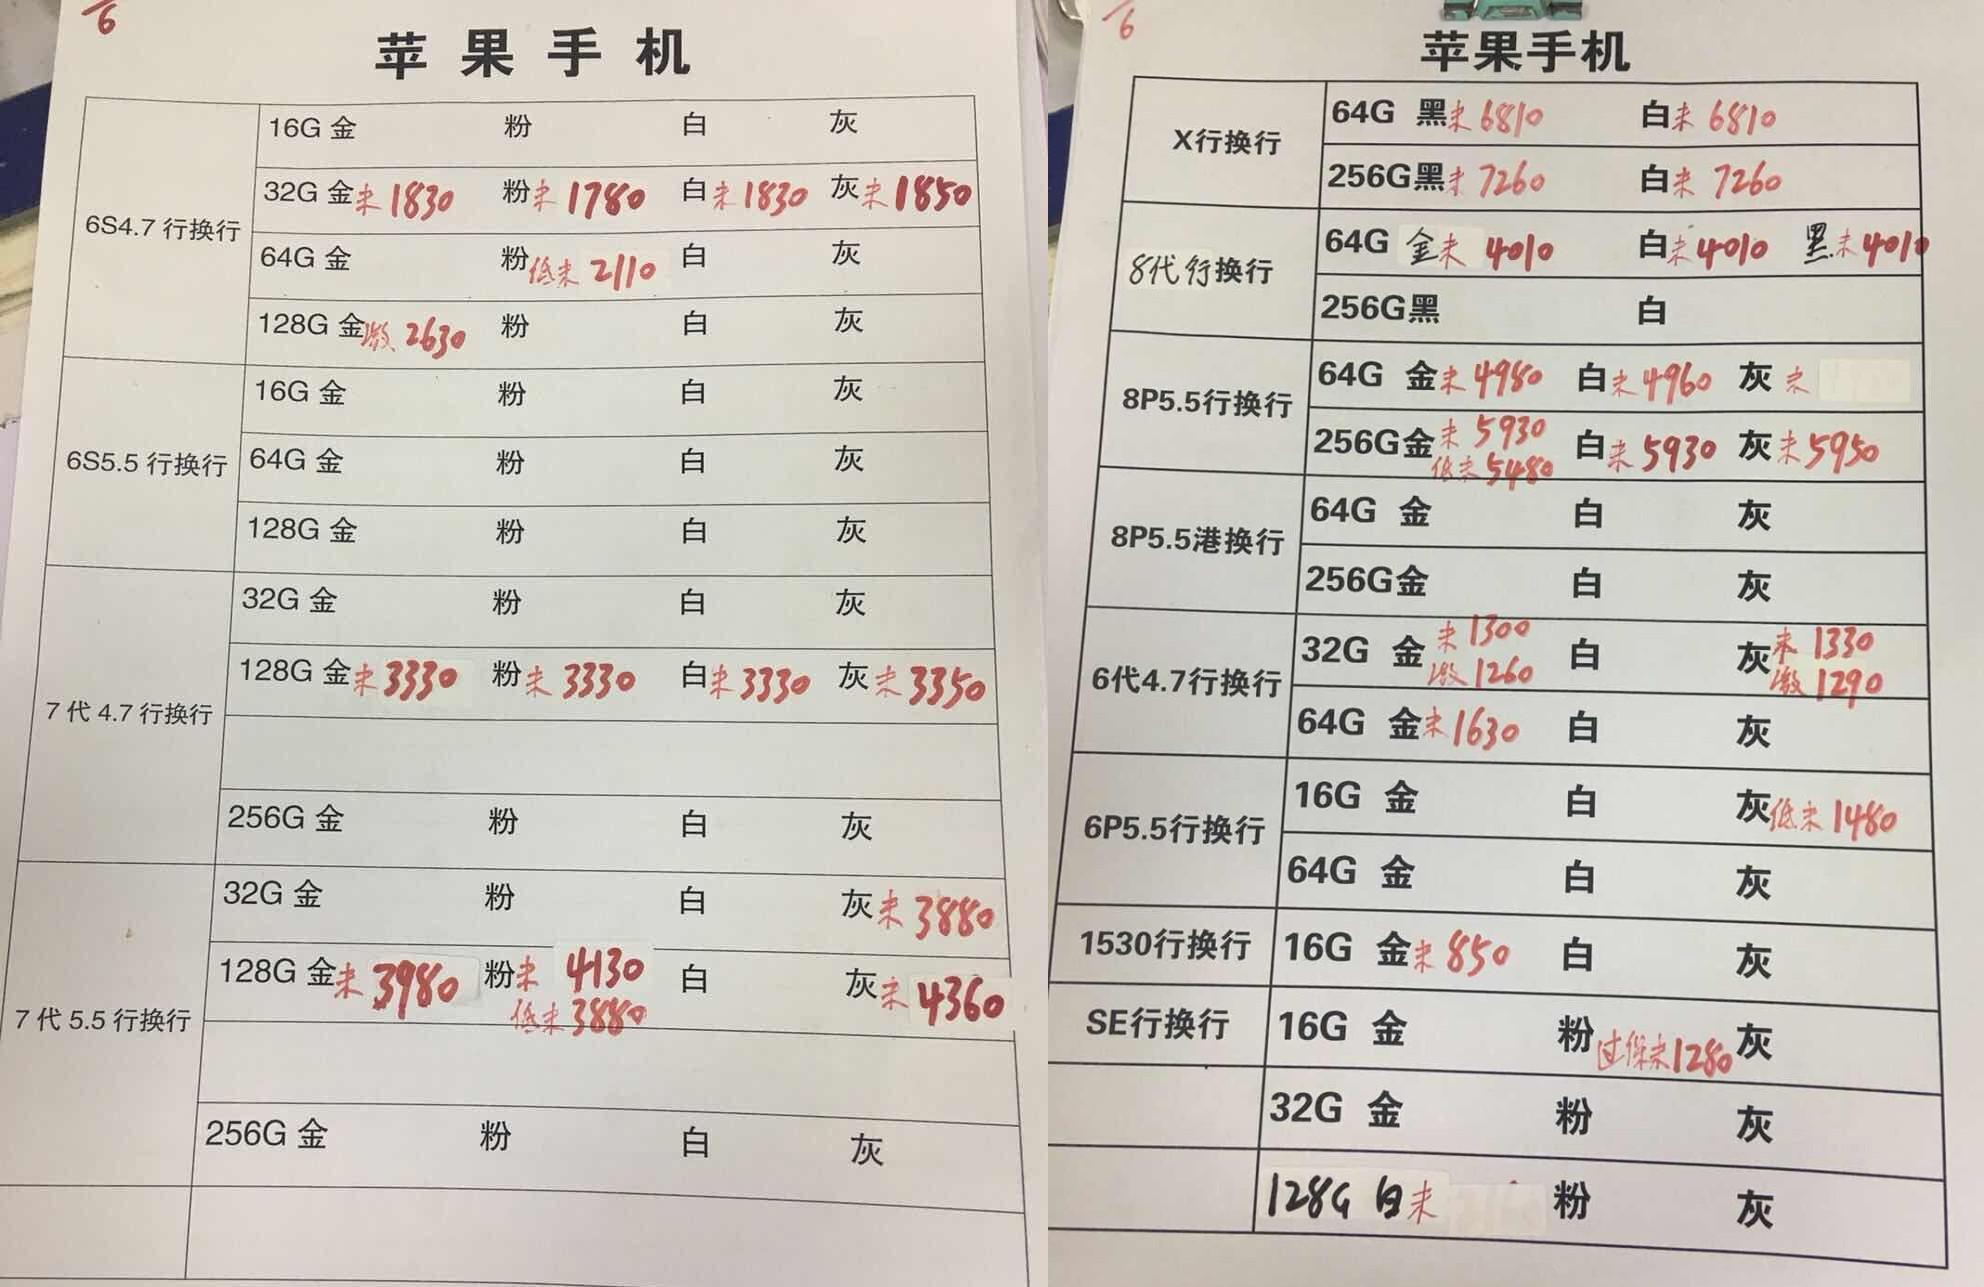 6
苹果手机
6S4.7行换行
16G 金 粉 白 灰
32G 金未1830 粉未1780 白未1830 灰未1850
64G 金 粉低未2110 白 灰
128G 金激2630 粉 白 灰
6S5.5行换行
16G 金 粉 白 灰
64G 金 粉 白 灰
128G 金 粉 白 灰
7代4.7行换行
32G 金 粉 白 灰
128G 金未3330 粉未3330 白未3330 灰未3350
256G 金 粉 白 灰
7代5.5行换行
32G 金 粉 白 灰未3880
128G 金未3980 粉未4130 白 灰未4360
低未3880
256G 金 粉 白 灰
6
苹果手机
X行换行
64G 黑未6810 白未6810
256G黑未7260 白未7260
8代行换行
64G 金未4010 白未4010 黑未4010
256G黑 白
8P5.5行换行
64G 金未4980 白未4960 灰未
256G金未5930 白未5930 灰未5950
低未5480
8P5.5港换行
64G 金 白 灰
256G金 白 灰
6代4.7行换行
32G 金未1300 白 灰未1330
激1260 激1290
64G 金未1630 白 灰
6P5.5行换行
16G 金 白 灰低未1480
64G 金 白 灰
1530行换行
16G 金未850 白 灰
SE行换行
16G 金 粉过保未1280 灰
32G 金 粉 灰
128G 白未 粉 灰